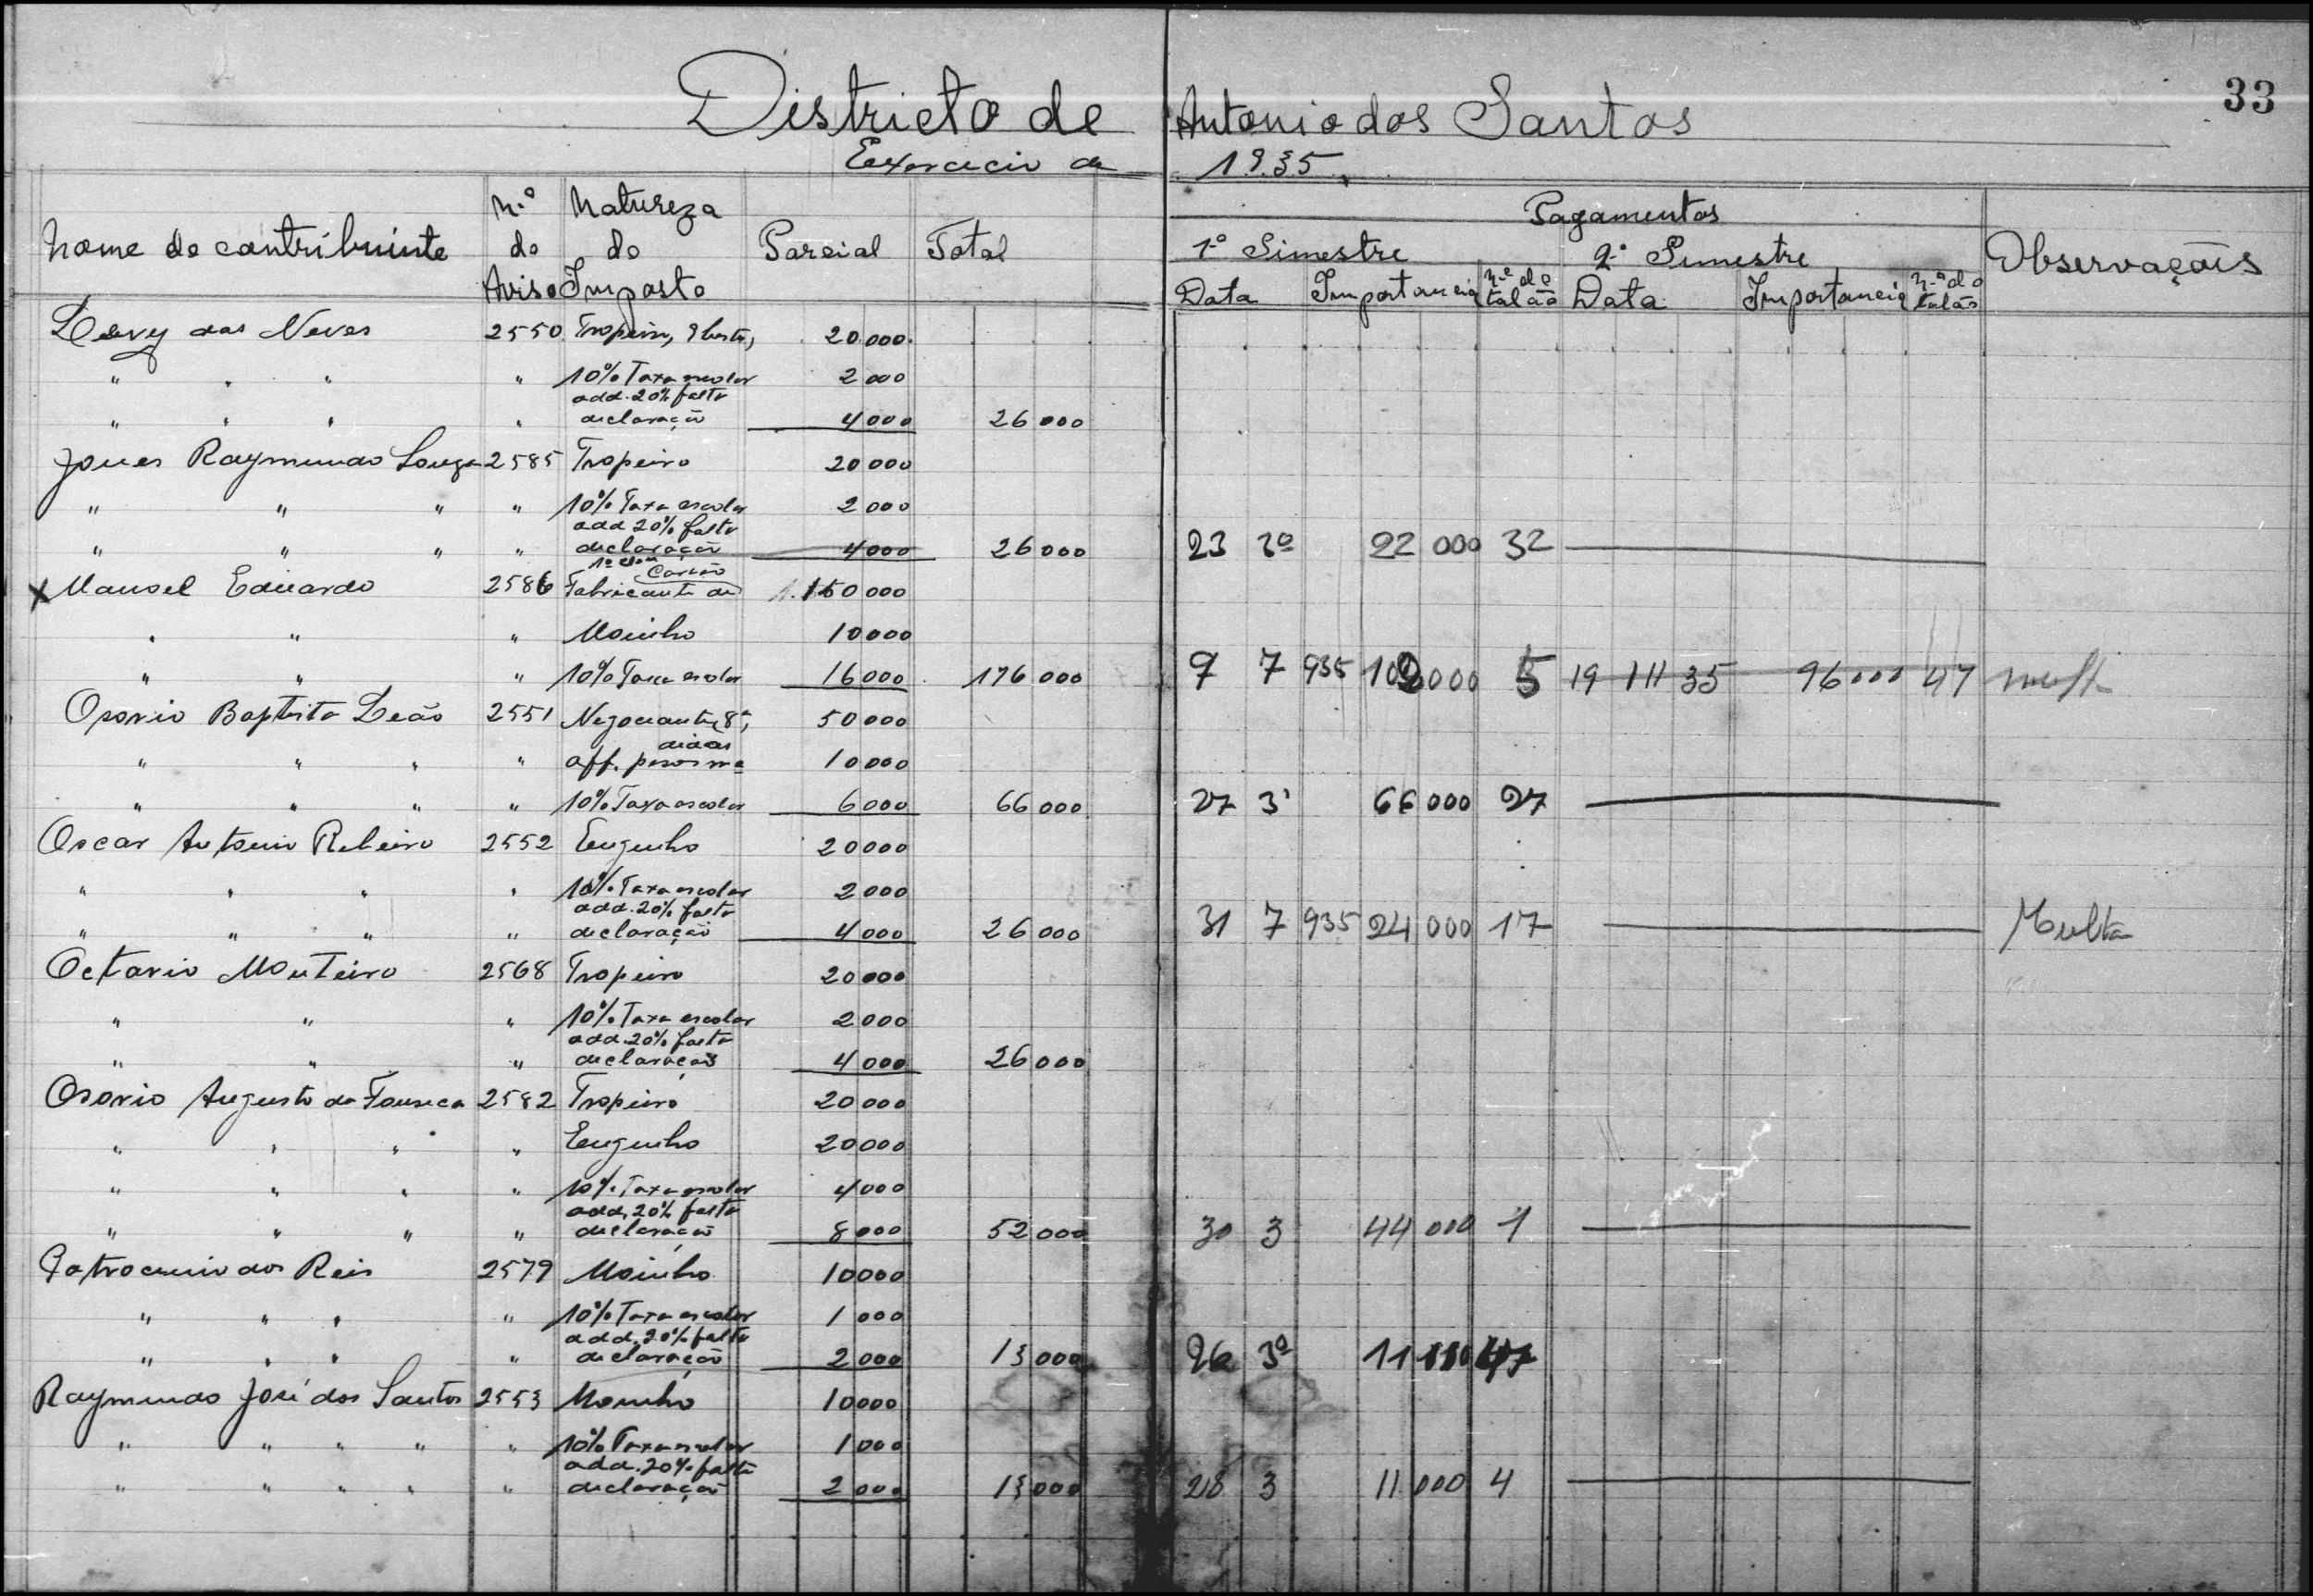 33
Districto de Antonio dos Santos
Exercicio de 1935.
Nome do contribuinte N.º do Aviso Natureza do Imposto Parcial Total Pagamentos Observações
1º Simestre 2º Simestre
Data Importancia n.º do talão Data Importancia n.º do talão
Levy das Neves 2550 Tropeiro, 20.000
" " " " 10% Taxa escolar 2000
add. 20% falta
" " " " declaração 4000 26000
Jones Raymundo Souza 2585 Tropeiro 20000
" " " " 10% Taxa escolar 2000
add 20% falta
" " " " declaração 4000 26000 23 3º 22 000 32
1ª clas. Carvão
X Manoel Eduardo 2586 Fabricante de 150 000
" " " Moinho 10000
" " " 10% Taxa escolar 16000 176 000 9 7 935 000 5 19 111 35 96000 47 multa
Osorio Baptista Leão 2551 Negociante, 8ª, 50000
" " " " aff. pesos 10000
" " " " 10% Taxa escolar 6000 66000 27 3º 66 000 27
Oscar Antonio Ribeiro 2552 Engenho 20000
" " " " 10% Taxa escolar 2000
add. 20% falta
" " " " declaração 4000 26000 31 7 935 24 000 17 Multa
Octavio Monteiro 2568 Tropeiro 20000
" " " 10% Taxa escolar 2000
add. 20% falta
" " " declaração 4000 26000
Osorio Augusto da Fonseca 2582 Tropeiro 20000
" " " " Engenho 20000
" " " " 10% Taxa escolar 4000
add. 20% falta
" " " " declaração 8000 52000 30 3 44 000 1
Patrocinio dos Reis 2579 Moinho 10000
" " " " 10% Taxa escolar 1000
add. 20% falta
" " " " declaração 2000 13000 26 3º 11 47
Raymundo José dos Santos 2553 Moinho 10000
" " " " " 10% Taxa escolar 1000
add. 20% falta
" " " " " declaração 2000 13000 28 3 11 000 4